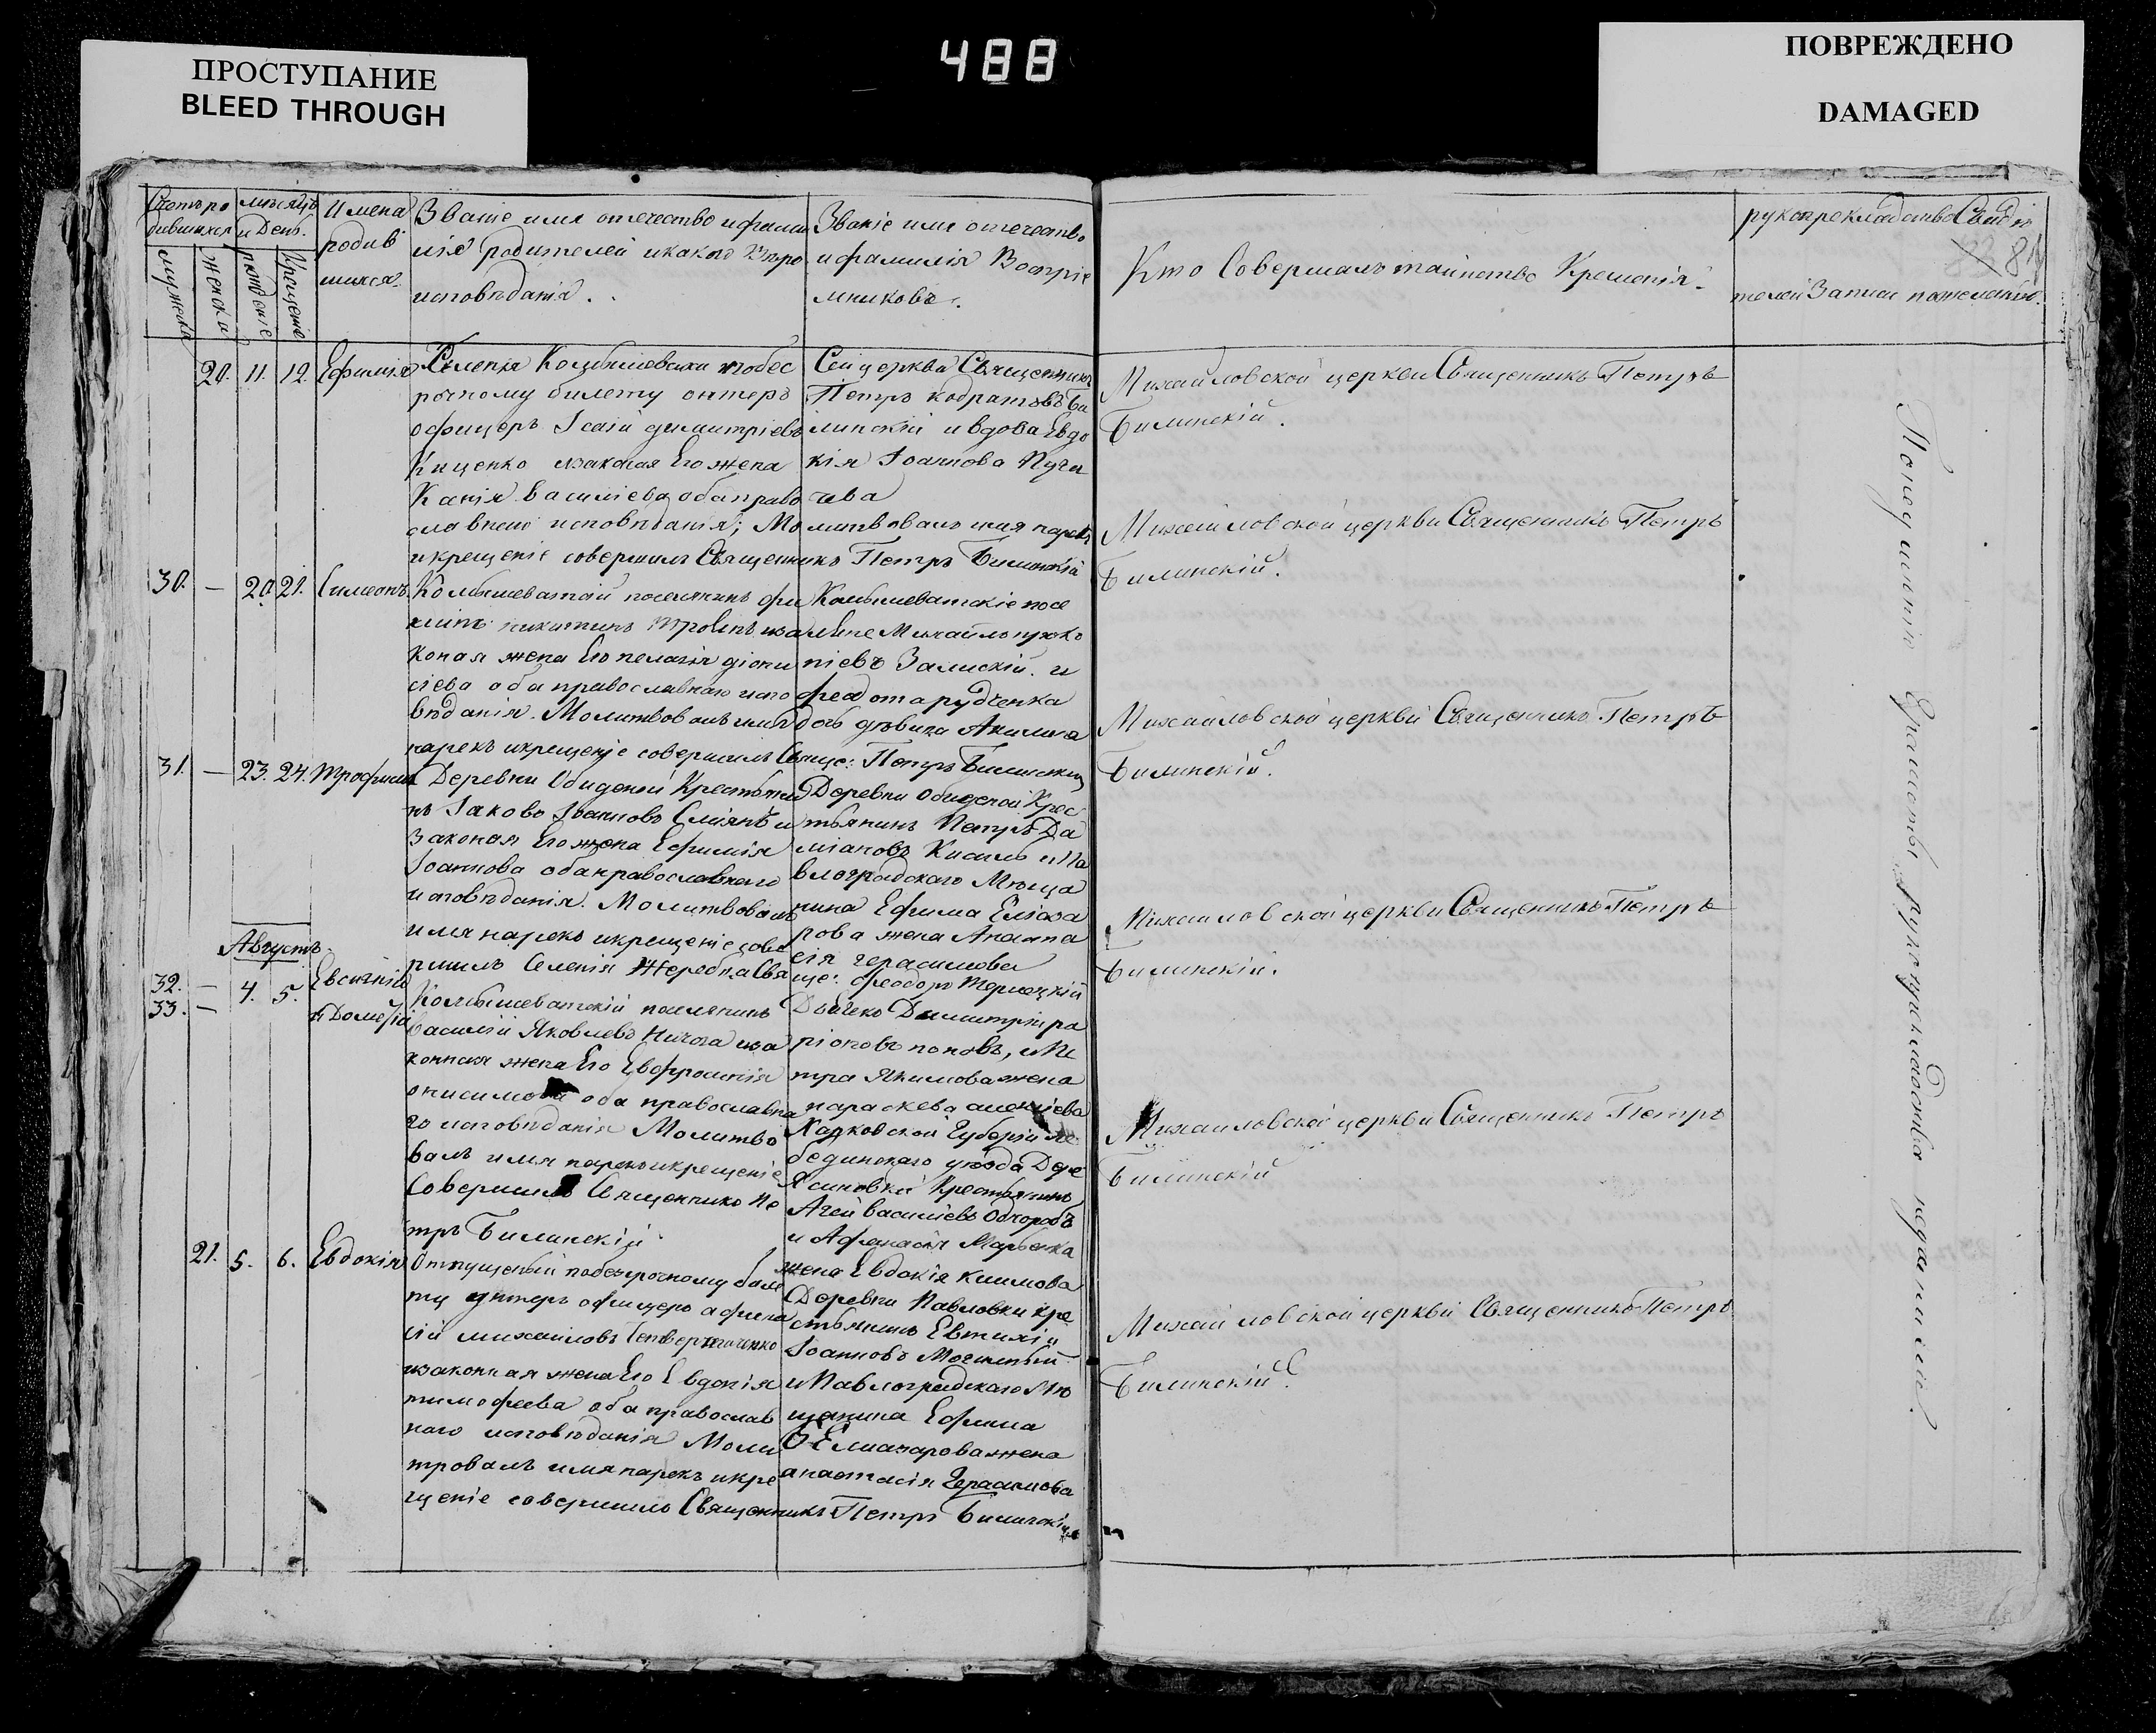 ПРОСТУПАНИЕ
BLEED THROUGH
488
ПОВРЕЖДЕНО
DAMAGED
мѣсяцъ
и День.
мужеска
женска
рожденіе
Крещеніе
Имена
родив
шихся
Званіе имя отечество и фами
лія родителей и какого Вѣро
исповѣданія.
Званіе имя отечество
и фамилія Воспріе
мниковъ.
Кто Совершалъ таинство Крещенія.
рукоприкладство Свидѣ
83 84
телей Записи по желанію.
20. 11. 12. Ефимія
Селенія
рочному билету онтеръ
офицеръ Ісаій димитріевъ
Кищенко законая Его жена
Василіева оба право
славнаго исповѣданія; Молитвовалъ имя нарекъ
и крещеніе совершилъ Священникъ Петръ Билинскій
Сей церкви Священникъ
Петръ Би
линскій и вдова Евдо
кія Іоаннова Пуга
чева
Михайловской церкви Священникъ Петръ
Билинскій.
30. — 20. 21. Симеонъ
поселянинъ фи
липъ никитинъ иза
коная жена Его пелагія діони
сіева оба православнаго испо
вѣданія. Молитвовалъ имя
нарекъ и крещеніе совершилъ Свяще: Петръ Билинскій
посе
ляне Михайлъ проко
піевъ Залискій. и
феодота рудченка
дочь дѣвица Акилина
Михайловской церкви Священникъ Петръ
Билинскій.
31. — 23. 24. трофимъ
Деревни Обидной Крестьяни
нъ Іаковъ Іоанновъ и
законая Его жена Ефимія
Іоаннова оба православнаго
исповѣданія. Молитвовалъ
имя нарекъ и крещеніе сове
ршилъ Селенія Жеребца Свя
Деревни Обидной Крес
тьянинъ Петръ Да
міановъ Кисиль и Па
влоградскаго Мѣща
нина Ефима Еліаза
рова жена Анаста
сія герасимова
ще: феодоръ
Михайловской церкви Священникъ Петръ
Билинскій.
Августъ.
32. — 4. 5. Евсигній
33. — и Дометій
поселянинъ
василій Яковлевъ иза
конная жена Его Евфросинія
онисимова оба православна
го исповѣданія Молитво
валъ имя нарекъ и крещеніе
Совершилъ Священникъ Пе
тръ Билинскій.
Дьячекъ Димитрій
ріоновъ поповъ, и Пе
тра Якимова жена
параскева алексіева
Харковской Губерніи Ле
бединскаго уѣзда Дере
Ясиновки Крестьянинъ
Агей василіевъ
и Афанасія
жена Евдокія климова
Михайловской церкви Священникъ Петръ
Билинскій.
21. 5. 6. Евдокія
Отпущеный по безсрочному биле
ту унтеръ офицеръ афана
сій михайловъ
изаконная жена Его Евдокія
тимофеева оба православ
наго исповѣданія Моли
твовалъ имя нарекъ и кре
щеніе совершилъ Священникъ Петръ Билинскій
Деревни Павловки кре
стьянинъ Евтихій
Іоанновъ Могильный
и Павлоградскаго Мѣ
щанина Ефима
Елиазарова жена
анастасія Герасимова
Михайловской церкви Священникъ Петръ
Билинскій
Михайловской церкви Священникъ Петръ
Билинскій.
По неумѣнію грамоты рукоприкладства неучинили.